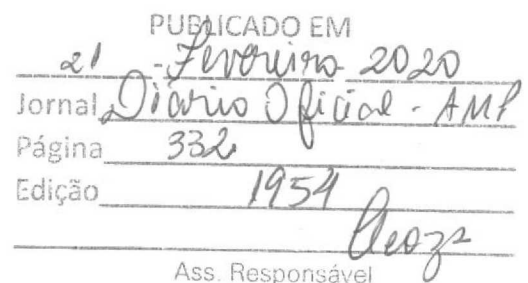 PUBLICADO EM
21 - Fevereiro - 2020
Jornal Diário Oficial - AMP
Página 332
Edição 1954
Ass. Responsável